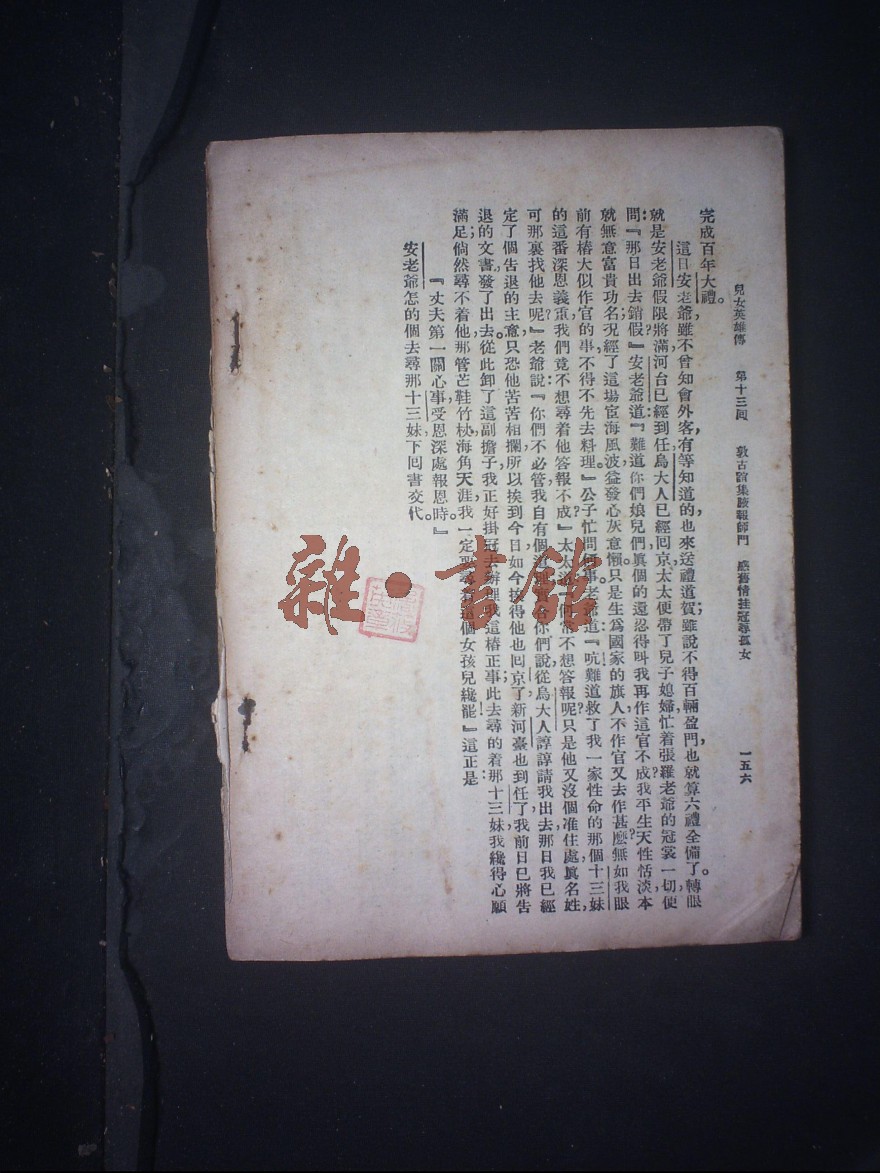 兒女英雄傳 第十三囘 敦古誼集腋報師門 感舊情挂冠尋孤女 一五六
完成百年大禮。
這日安老爺雖不曾知會外客,有等知道的也來送禮道賀;雖說不得百輛盈門,也就算六禮全備了。轉眼
就是安老爺假限將滿,河台已經到任,烏大人已經囘京,太太便帶了兒子媳婦忙着張羅老爺的冠裳一切,便
問:『那日出去銷假?』安老爺道:『難道你們娘兒們眞個的還忍得叫我再作這官不成?我平生天性恬淡,本
就無意富貴功名;況經了這場宦海風波,益發心灰意懶。只是生爲國家的旗人,不作官又去作甚麽?無如我眼
前有椿大似作官的事,不得不先去料理。』公子忙問何事。老爺道:『吭!難道救了我一家性命的那個十三妹
的這番深恩義重,我們竟不想尋着他答報不成?』太太道:『何常不想答報呢?只是他又沒個准住處眞名姓,
可那裏找他去呢?』老爺說:『你們不必管,我自有個道理。實合你們說,從烏大人諄諄請我出去那日,我已經
定了個告退的主意,只恐他苦苦相攔,所以挨到今日。如今挨得他也囘京了,新河臺也到任了,我前日已將告
退的文書發了出去。從此卸了這副擔子,我正好掛冠去辦理我這椿正事。此去尋的着那十三妹,我纔得心願
滿足;倘然尋不着他,那管芒鞋竹杖,海角天涯,我一定要尋着這個女孩兒纔罷!』這正是:
『丈夫第一關心事,受恩深處報恩時。』
安老爺怎的個去尋那十三妹,下囘書交代。
雜·書館